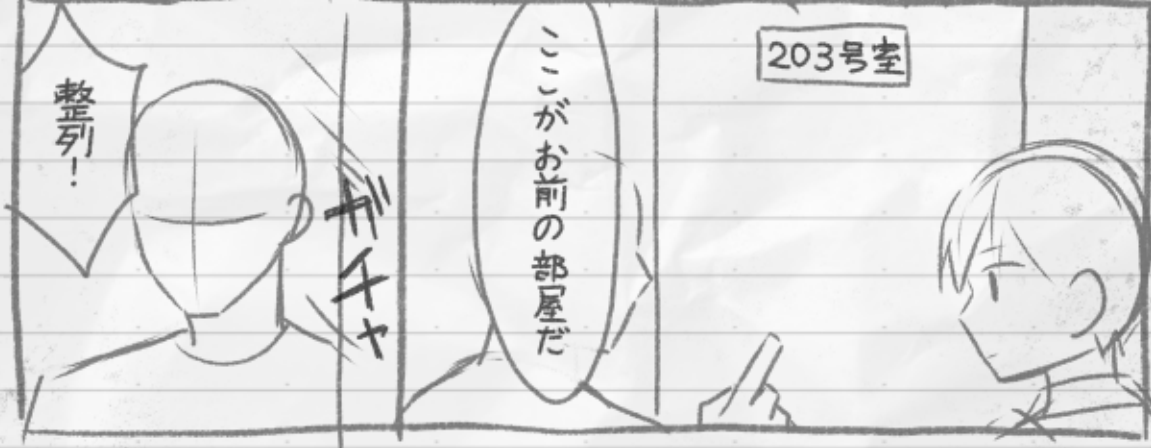 203号室
ここがお前の部屋だ
ガチャ
整列!